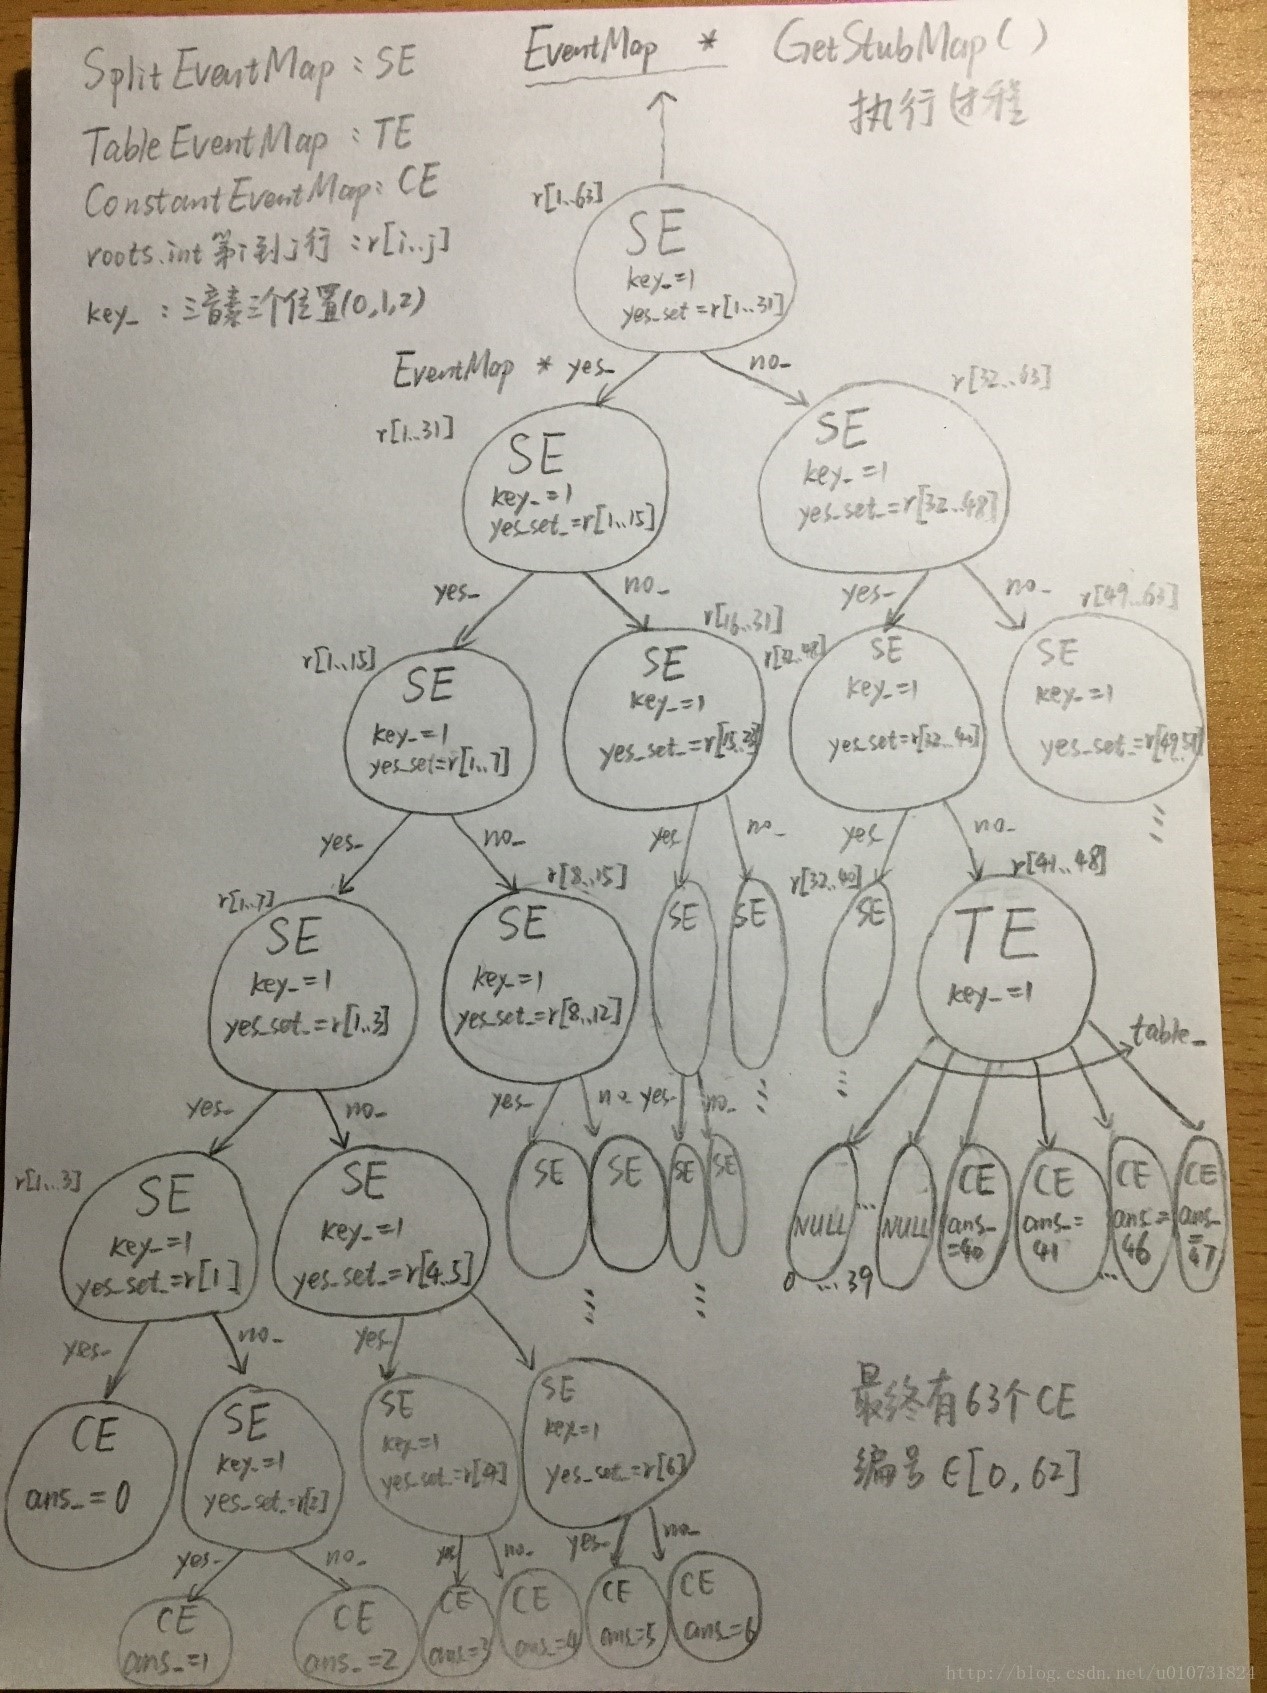 SplitEventMap : SE
TableEventMap : TE
ConstantEventMap : CE
roots.int 第i到j行 : r[i..j]
key_ : 三音素三个位置(0,1,2)
EventMap * GetStubMap()
执行过程
r[1..63]
SE
key_=1
yes_set=r[1..31]
EventMap * yes_
no_
r[1..31]
SE
key_=1
yes_set_=r[1..15]
r[32..63]
SE
key_=1
yes_set_=r[32..48]
yes_
no_
yes_
no_
r[1..15]
SE
key_=1
yes_set=r[1..7]
r[16..31]
SE
key_=1
yes_set_=r[15..23]
r[32..48]
SE
key_=1
yes_set=r[32..40]
r[49..63]
SE
key_=1
yes_set_=r[49..57]
yes_
no_
yes
no_
yes
no_
r[1..7]
SE
key_=1
yes_set_=r[1..3]
r[8..15]
SE
key_=1
yes_set_=r[8..12]
SE
SE
r[32..40]
SE
r[41..48]
TE
key_=1
table_
yes_
no_
yes_
no_
yes_
no_
r[1..3]
SE
key_=1
yes_set_=r[1]
SE
key_=1
yes_set_=r[4..5]
SE
SE
SE
SE
NULL
...
NULL
0 ...39
CE
ans_
=40
CE
ans_=
41
...
CE
ans=
46
CE
ans_
=
47
yes_
no_
yes_
CE
ans_=0
SE
key_=1
yes_set_=r[2]
SE
key=1
yes_set_=r[4]
SE
key=1
yes_set_=r[6]
yes_
no_
yes
no_
yes_
no_
CE
ans_=1
CE
ans_=2
CE
ans=3
CE
ans_=4
CE
ans_=5
CE
ans_=6
最终有63个CE
编号∈[0,62]
http://blog.csdn.net/u010731824